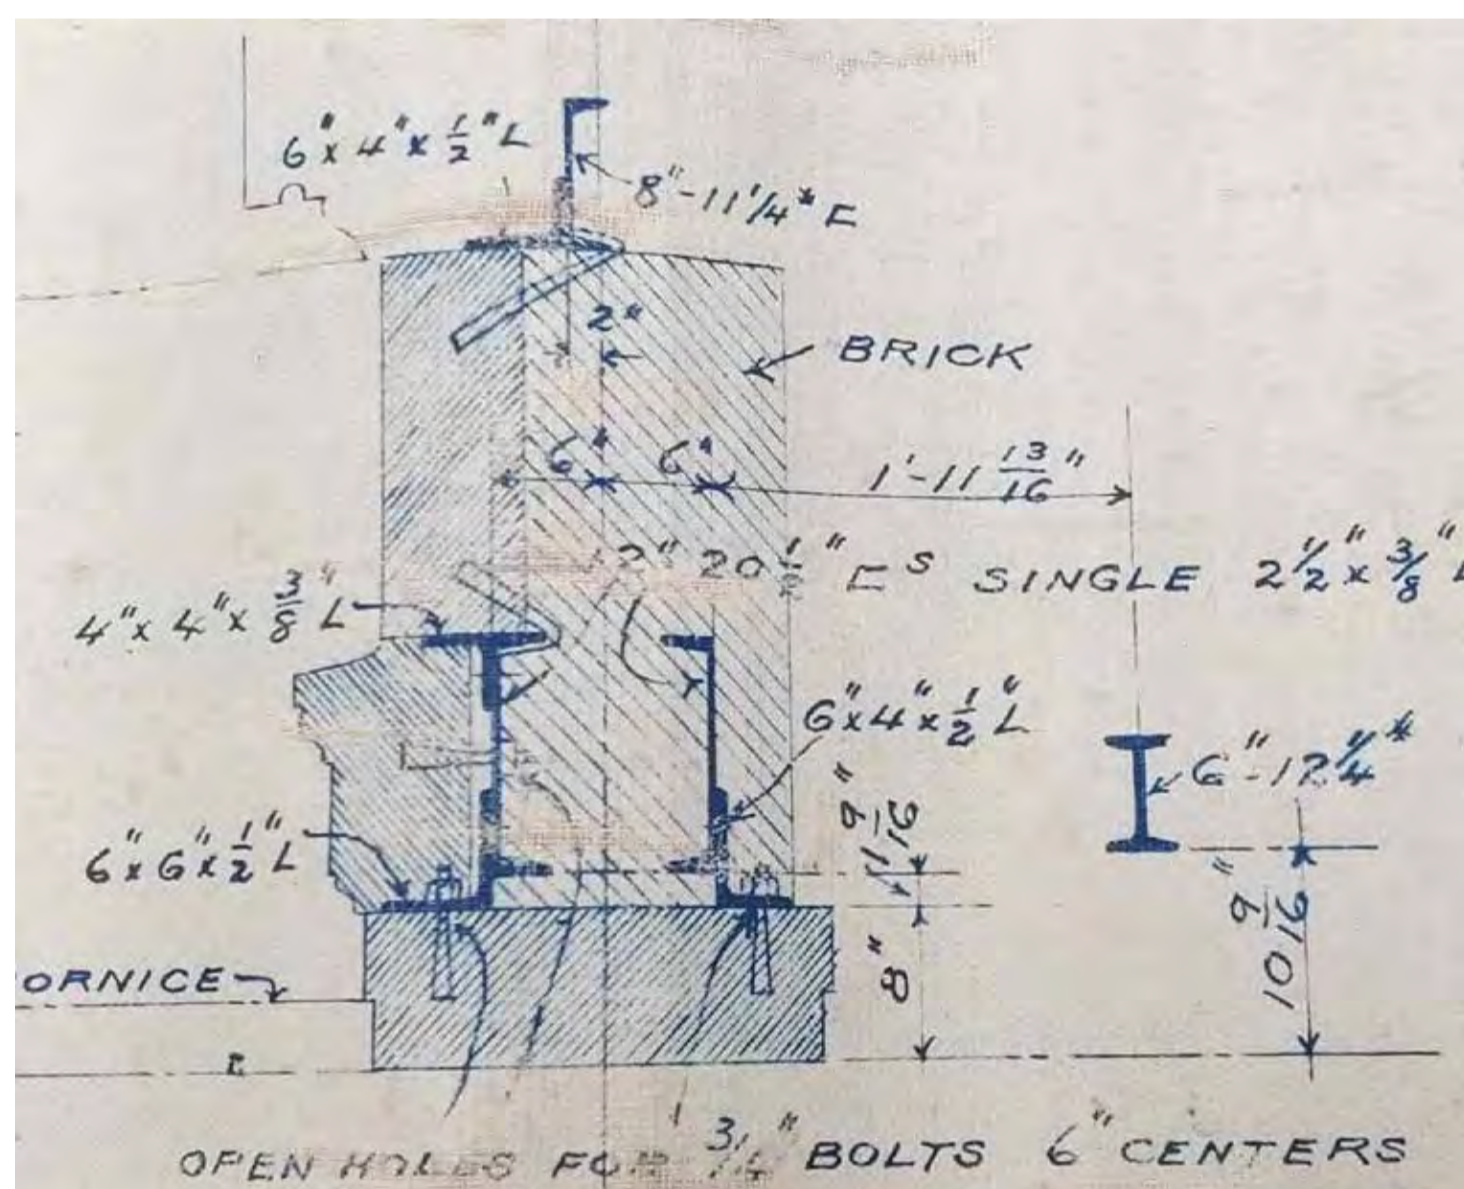 6"x 4"x 1/2" L
8"-11 1/4# C
2"
BRICK
6" 6" 1'-11 13/16"
2" 20 1/2" Cs SINGLE 2 1/2" x 3/8" L
4"x 4"x 3/8" L
6"x4"x 1/2" L
6"-12 1/4#
1 9/16"
6"x6"x 1/2" L
10 9/16"
8"
ORNICE
OPEN HOLES FOR 3/4" BOLTS 6" CENTERS